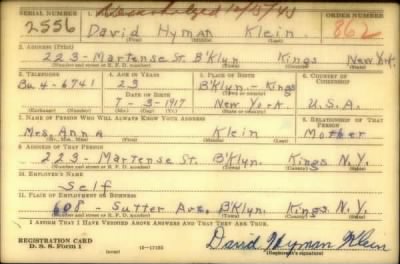 SERIAL NUMBER 1. ORDER NUMBER
2556 David Hyman Klein. 862
2. ADDRESS (Print)
223 - Martense St. B'Klyn Kings New York.
(Number and street or R. F. D. number) (Town) (County) (State)
3. TELEPHONE 4. AGE IN YEARS 5. PLACE OF BIRTH 6. COUNTRY OF CITIZENSHIP
Bu 4 - 6741 23 B'Klyn. - Kings
DATE OF BIRTH
7 - 3 - 1917 New York. U.S.A.
(Exchange) (Number) (Mo.) (Day) (Yr.) (State or country)
7. NAME OF PERSON WHO WILL ALWAYS KNOW YOUR ADDRESS 8. RELATIONSHIP OF THAT PERSON
Mrs. Anna Klein Mother
(Mr., Mrs., Miss) (First) (Middle) (Last)
9. ADDRESS OF THAT PERSON
223 - Martense St. B'Klyn. Kings N.Y.
(Number and street or R. F. D. number) (Town) (County) (State)
10. EMPLOYER'S NAME
Self
11. PLACE OF EMPLOYMENT OR BUSINESS
608 - Sutter Ave. B'Klyn. Kings N.Y.
(Number and street or R. F. D. number) (Town) (County) (State)
I AFFIRM THAT I HAVE VERIFIED ABOVE ANSWERS AND THAT THEY ARE TRUE.
REGISTRATION CARD
D. S. S. Form 1 (over) 16-17105 David Hyman Klein
(Registrant's signature)